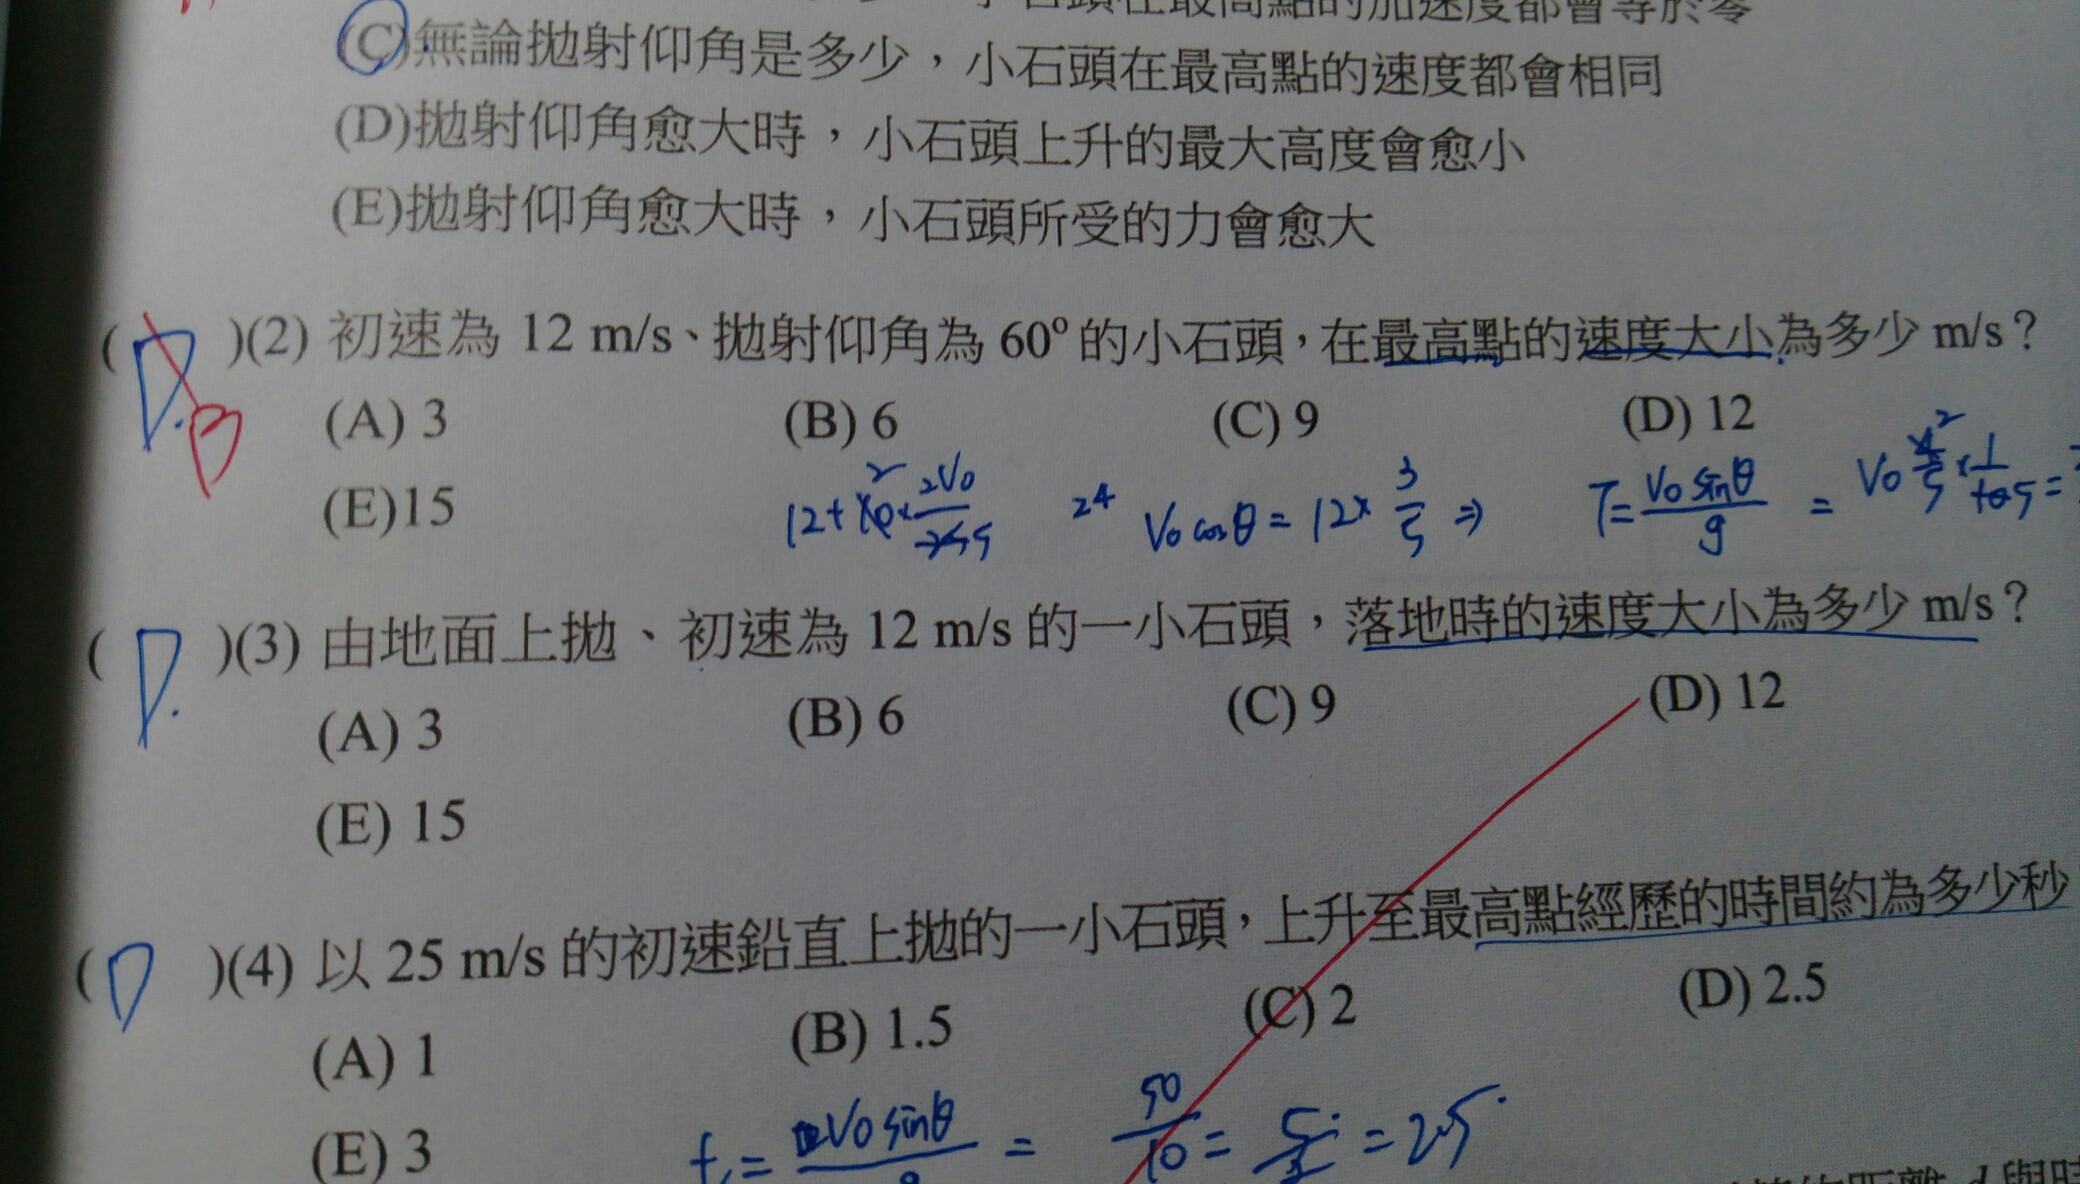 小石頭在最高點的加速度都會等於零
(C)無論拋射仰角是多少，小石頭在最高點的速度都會相同
(D)拋射仰角愈大時，小石頭上升的最大高度會愈小
(E)拋射仰角愈大時，小石頭所受的力會愈大
( D. )(2) 初速為 12 m/s、拋射仰角為 60°的小石頭，在最高點的速度大小為多少 m/s？
B
(A) 3 (B) 6 (C) 9 (D) 12
(E)15
24 V0 cosθ = 12× 3/5 ⇒ T= V0 sinθ / g =
( D. )(3) 由地面上拋、初速為 12 m/s 的一小石頭，落地時的速度大小為多少 m/s？
(A) 3 (B) 6 (C) 9 (D) 12
(E) 15
( D )(4) 以 25 m/s 的初速鉛直上拋的一小石頭，上升至最高點經歷的時間約為多少秒
(A) 1 (B) 1.5 (C) 2 (D) 2.5
(E) 3
V0 sinθ = 50/10 = = 2.5